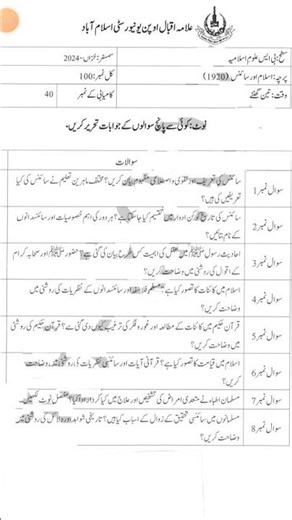 علامہ اقبال اوپن یونیورسٹی اسلام آباد
سطح: بی ایس علوم اسلامیہ
سمسٹر: خزاں-2024
پرچہ: اسلام اور سائنس (1920)
کل نمبر: 100
وقت: تین گھنٹے
کامیابی کے نمبر 40
نوٹ: کوئی سے پانچ سوالوں کے جوابات تحریر کریں۔
سوالات
سوال نمبر 1 سائنس کی تعریف اور لغوی و اصطلاحی مفہوم بیان کریں؟ مختلف ماہرین تعلیم نے سائنس کی کیا
تعریفیں کی ہیں؟
سوال نمبر 2 سائنس کی تاریخ کو کن ادوار میں تقسیم کیا جا سکتا ہے؟ ہر دور کی اہم خصوصیات اور سائنسدانوں
کے نام بتائیں؟
سوال نمبر 3 احادیث رسول ﷺ میں عقل کی اہمیت کس طرح بیان کی گئی ہے؟ حضور ﷺ اور صحابہ کرام
کے اقوال کی روشنی میں وضاحت کریں؟
سوال نمبر 4 اسلام میں کائنات کا تصور کیا ہے؟ مسلم فلاسفہ اور سائنسدانوں کے نظریات کی روشنی میں
وضاحت کریں؟
سوال نمبر 5 قرآن حکیم میں کائنات کے مطالعہ اور غور و فکر کی ترغیب کیوں دی گئی ہے؟ قرآن حکیم کی روشنی
میں وضاحت کریں؟
سوال نمبر 6 اسلام میں قیامت کا تصور کیا ہے؟ قرآنی آیات اور سائنسی نظریات کی روشنی میں وضاحت
کریں؟
سوال نمبر 7 مسلمان اطباء نے متعدی امراض کی تشخیص اور علاج میں کیا کردار ادا کیا؟ مفصل نوٹ لکھیں۔
سوال نمبر 8 مسلمانوں میں سائنسی تحقیق کے زوال کے اسباب کیا ہیں؟ تاریخی شواہد اور دلائل کی روشنی میں
وضاحت کریں؟